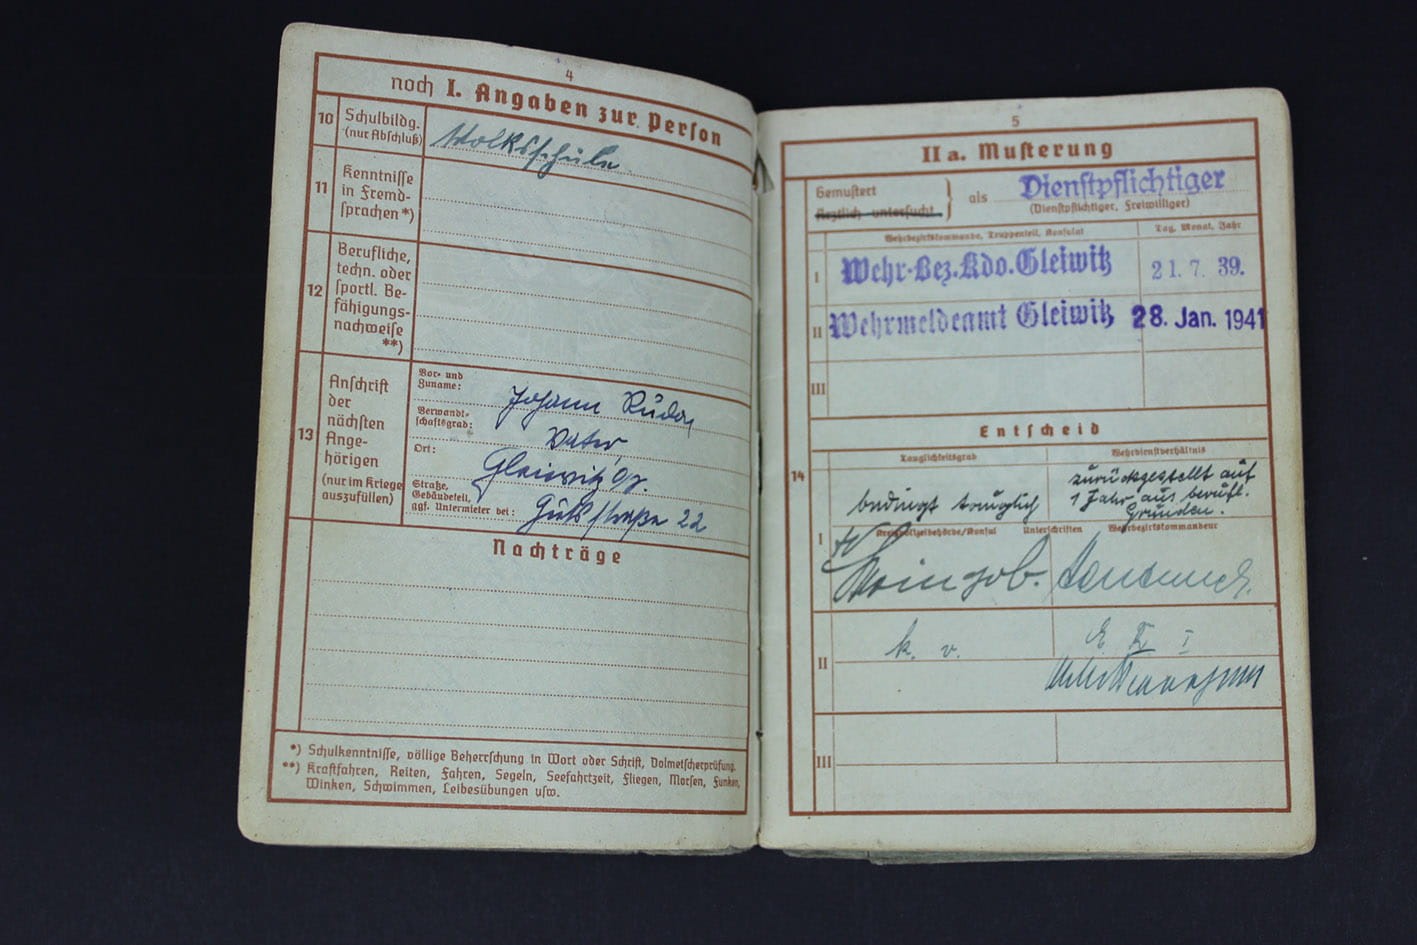 4
noch I. Angaben zur Person
10 Schulbildg.
(nur Abschluß)
Volksschule
11 Kenntnisse
in Fremd-
sprachen *)
12 Berufliche,
techn. oder
sportl. Be-
fähigungs-
nachweise
**)
13 Anschrift
der
nächsten
Ange-
hörigen
(nur im Kriege
auszufüllen)
Vor- und
Zuname:
Johann
Verwandt-
schaftsgrad:
Vater
Ort:
Gleiwitz
Straße,
Gebäudeteil,
ggf. Untermieter bei:
22
Nachträge
*) Schulkenntnisse, völlige Beherrschung in Wort oder Schrift, Dolmetscherprüfung.
**) Kraftfahren, Reiten, Fahren, Segeln, Seefahrtzeit, Fliegen, Morsen, Funken,
Winken, Schwimmen, Leibesübungen usw.
5
IIa. Musterung
Gemustert
Ärztlich untersucht
als Dienstpflichtiger
(Dienstpflichtiger, Freiwilliger)
Wehrbezirkskommando, Truppenteil, Konsulat Tag, Monat, Jahr
I Wehr-Bez.-Kdo. Gleiwitz 21. 7. 39.
II Wehrmeldeamt Gleiwitz 28. Jan. 1941
III
Entscheid
14
Tauglichkeitsgrad Wehrdienstverhältnis
bedingt tauglich
zurückgestellt auf
1 Jahr aus berufl.
Gründen.
I Kreispolizeibehörde/Konsul Unterschriften Wehrbezirkskommandeur
II k. v.
III